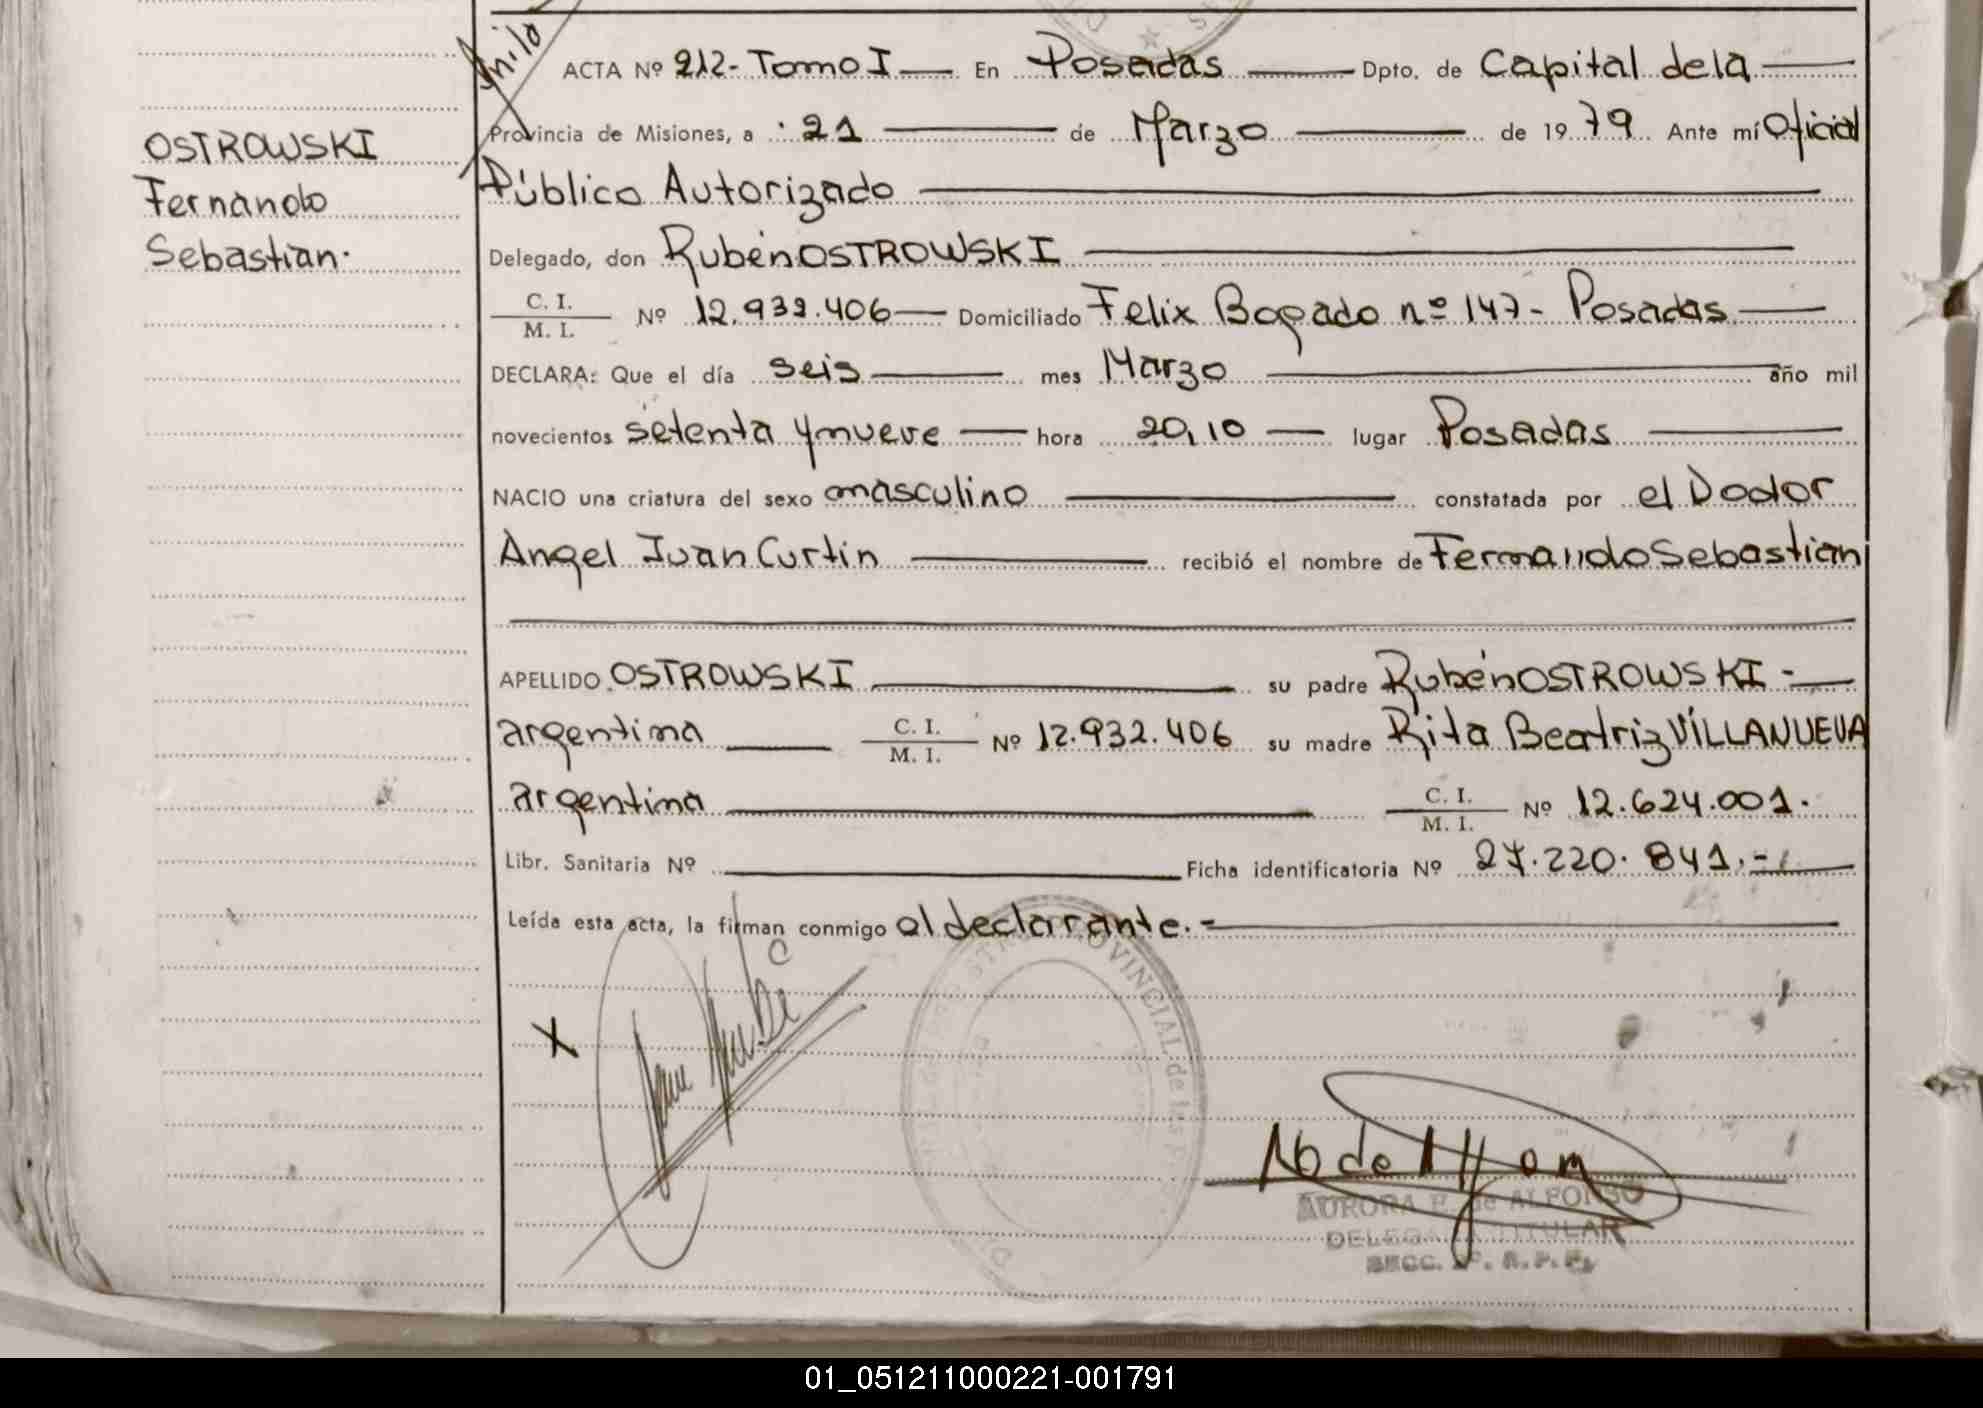 ACTA Nº 212- Tomo I En Posadas Dpto. de Capital de la
Provincia de Misiones, a 21 de Marzo de 1979 Ante mí Oficial
Público Autorizado
OSTROWSKI
Fernando
Sebastian.
Delegado, don Rubén OSTROWSKI
C. I.
M. I. Nº 12.932.406 Domiciliado Felix Bogado nº 147- Posadas
DECLARA: Que el día seis mes Marzo año mil
novecientos setenta y nueve hora 20,10 lugar Posadas
NACIO una criatura del sexo masculino constatada por el Doctor
Angel Juan Curtin recibió el nombre de Fernando Sebastian
APELLIDO OSTROWSKI su padre Rubén OSTROWSKI -
argentina C. I.
M. I. Nº 12.932.406 su madre Rita Beatriz VILLANUEVA
argentina C. I.
M. I. Nº 12.624.001.
Libr. Sanitaria Nº Ficha identificatoria Nº 27.220.841.-
Leída esta acta, la firman conmigo el declarante.-
X
PROVINCIAL de las
AURORA E. de ALFONSO
DELEGADA TITULAR
SECC. R. P. P.
01_051211000221-001791